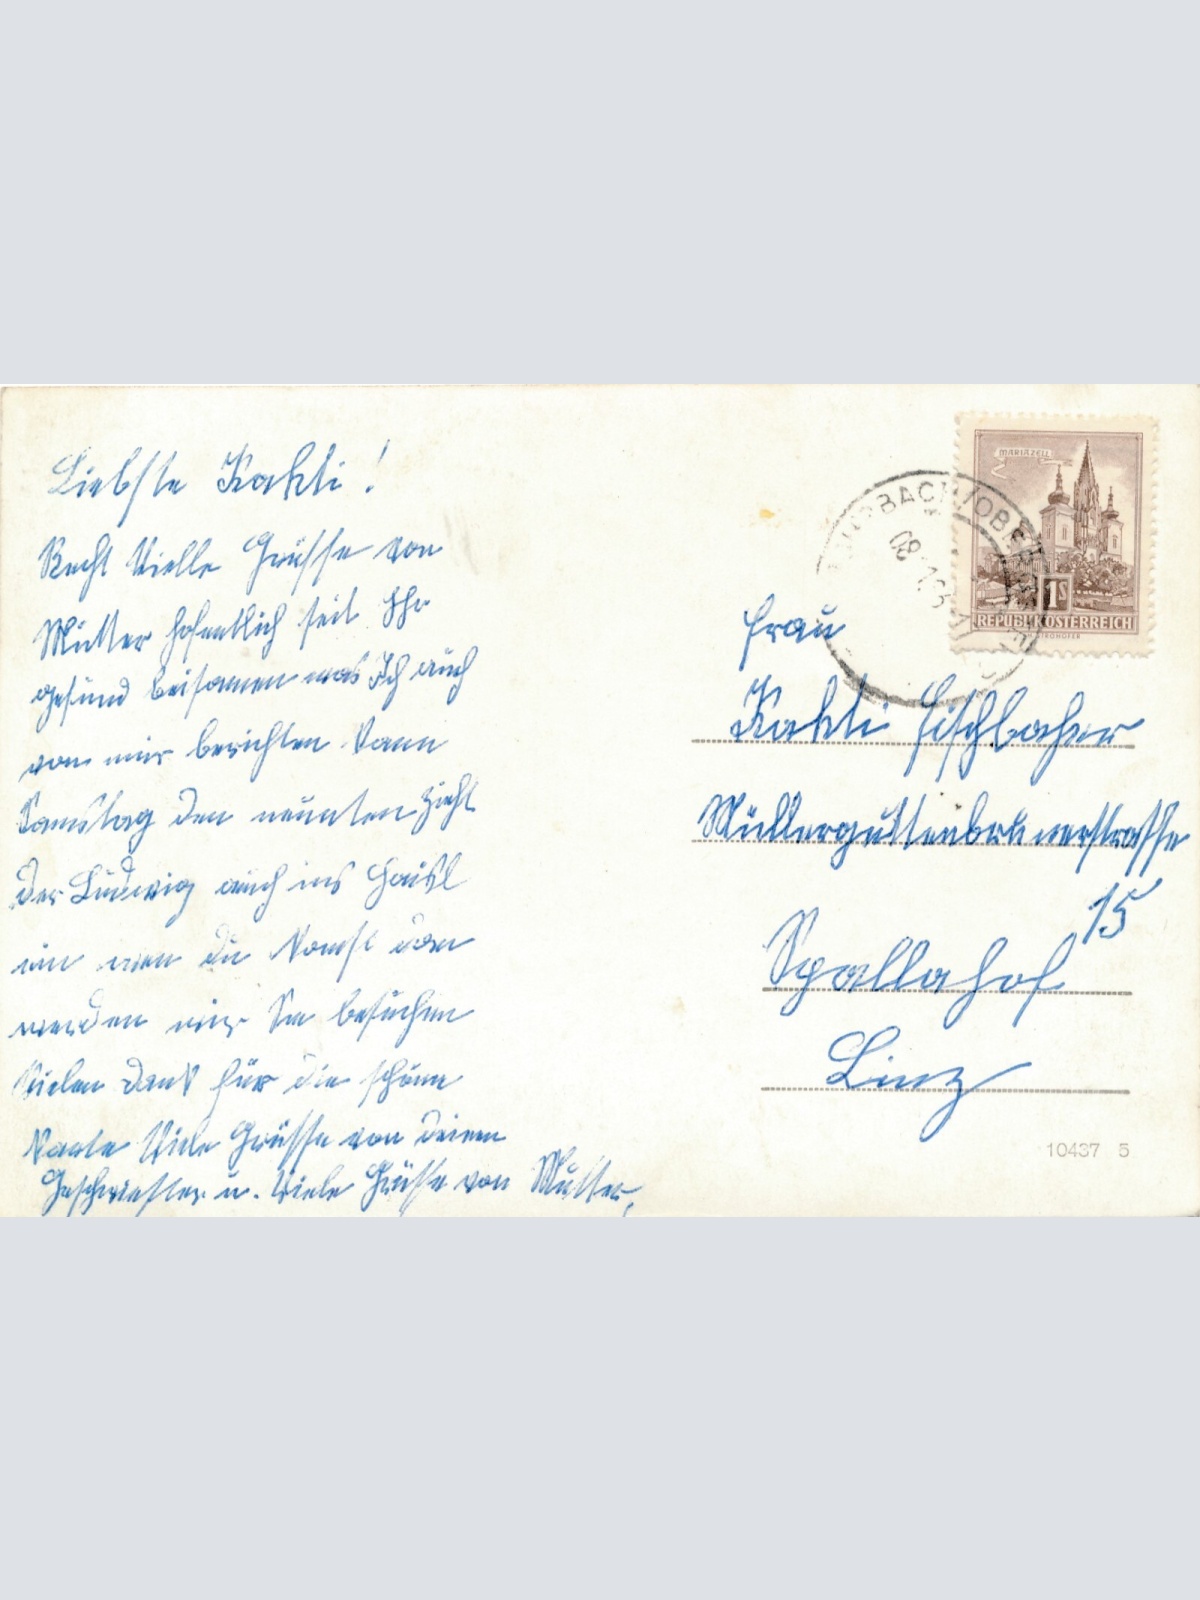 Liebste Kathi!
Recht Vielle Grüsse von
Mutter hofentlich seit Ihr
gesund beisamen was Ich auch
von mir berichten kann
Samstag den neunten zieht
der Ludwig auch ins Haisl
ein wen du komst dan
werden wir Sie besuchen
Vielen Dank für die schöne
Karte Viele Grüsse von deinen
Geschwister u. Viele Grüsse von Mutter,
MARIAZELL
1S
REPUBLIK ÖSTERREICH
Frau
Kathi Fischbacher
Müllerguttenbrunerstrasse
15
Spallahof
Linz
10437 5